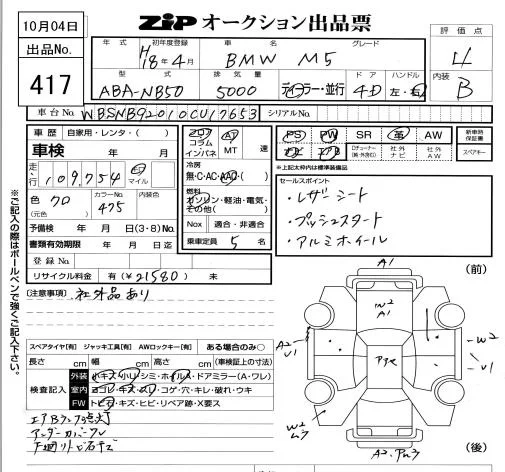 10月04日
出品No.
417
ZIP オークション出品票
評価点
4
内装
B
年式 初年度登録 車名 グレード
H18年4月 BMW M5
型式 排気量 ドア ハンドル
ABA-NB50 5000 ディーラー・並行 4D 左・右
車台No. WBSNB92010CU17653 シリアルNo.
車歴 自家用・レンタ・( )
車検 年 月
走行 109,754 マイル
色 クロ カラーNo. 475 内装色
(元色)
予備検 年 月 日(3・8)No.
書類有効期限 年 月 日迄
登録No.
リサイクル料金 有(¥21580) 未
フロア AT
コラム
インパネ MT 速
冷房
無・C・AC・AAC・( )
燃料
ガソリン・軽油・電気・
その他( )
Nox 適合・非適合
乗車定員 5 名
PS PW SR 革 AW
新車時保証書
Dチューナー(純・外含む) 社外ナビ 社外AW スペアキー
※上記太枠内は標準装備品
セールスポイント
・レザーシート
・プッシュスタート
・アルミホイール
※ご記入の際はボールペンで強くご記入下さい。
[注意事項] 社外品あり
スペアタイヤ[有] ジャッキ工具[有] AWロックキー[有] ある場合のみ○
長さ cm 幅 cm 高さ cm (車検証上の寸法)
検査記入
外装 小キズ・小凹・シミ・ホイルキズ・ドアミラー(A・ワレ)
室内 ヨゴレ・キズ・スリ・コゲ・穴・キレ・破れ・ウキ
FW トビ石・キズ・ヒビ・リペア跡・X要ス
エアBランプ点灯
アンダーカバーワレ
(前)
A1
W2
A1
A2
U1
W2
U1
アナ
W2
A2
(後)